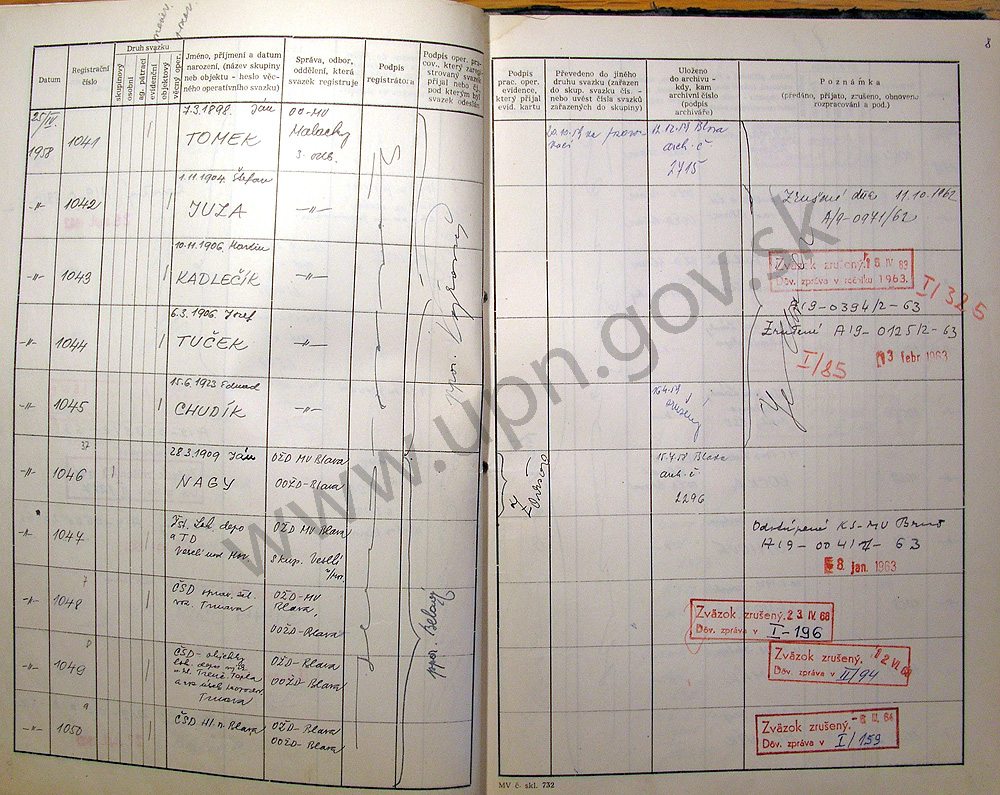 Datum
Registrační
číslo
Druh svazku
skupinový
osobní
ag. pátrací
evidenční
objektový
věcný oper.
Jméno, příjmení a datum
narození, (název skupiny
neb objektu - heslo věc-
ného operativního svazku)
Správa, odbor,
oddělení, která
svazek registruje
Podpis
registrátora
Podpis oper. pra-
cov., který zareg-
istrovaný svazek
přijal nebo čís.
pod kterým byl
svazek odeslán
25/IV.
1958
1041
7.3.1898. Ján
TOMEK
OO-MV
Malacky
3. odb.
-"-
1042
1.11.1904. Štefan
JUZA
-"-
-"-
1043
10.11.1906. Martin
KADLEČÍK
-"-
-"-
1044
6.3.1906. Jozef
TUČEK
-"-
-"-
1045
15.6.1923 Eduard
CHUDÍK
-"-
-"-
1046
28.3.1909 Ján
NAGY
OŽD MV Blava
OOŽD-Blava
-"-
1047
Výst. Lok. depo
a TD
Veselí nad Mor.
OŽD MV Blava
skup. Veselí
n/Mor.
-"-
1048
ČSD
Trnava
OŽD-MV
Blava,
OOŽD-Blava
-"-
1049
ČSD-objekty
lok. depo
Trenč. Teplá
Trnava
OŽD-Blava
OOŽD-Blava
-"-
1050
ČSD Hl. n. Blava
OŽD-Blava
OOŽD-Blava
npor. Belavý
8
Podpis
prac. oper.
evidence,
který přijal
evid. kartu
Převedeno do jiného
druhu svazku (zařazen
do skup. svazku čís. -
nebo uvést čísla svazků
zařazených do skupiny)
Uloženo
do archivu -
kdy, kam
archivní číslo
(podpis
archiváře)
Poznámka
(předáno, přijato, zrušeno, obnoveno
rozpracování a pod.)
20.10.58 na
12.12.58 Blava
arch. č
2715
Zrušené dňa 11.10.1962
A/9-0941/62
Zväzok zrušený. 15 IV 63
Dôv. zpráva v ročníku 1963.
I/325
A/9-0394/2-63
Zrušené A/9-0125/2-63
I/85
13 febr 1963
15.4.58 Blava
arch. č
2296
Odstúpené KS-MV Brno
A/9-0041/1-63
8. jan. 1963
Zväzok zrušený. 23. IV. 68
Dôv. zpráva v I-196
Zväzok zrušený. 12 VI. 68
Dôv. zpráva v II/94
Zväzok zrušený.
Dôv. zpráva v I/159
MV č. skl. 732
www.upn.gov.sk